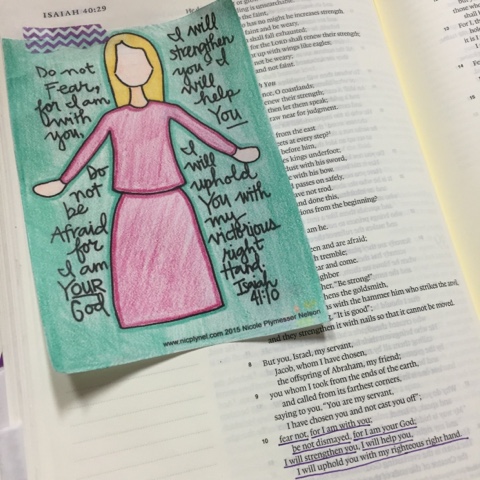 ISAIAH 40:29
Do not
Fear,
for I am
with
you.
Do
not
be
Afraid
for
I am
YOUR
God
I will
strengthen
you I
will
help
You
I
will
uphold
You with
my
victorious
right
Hand.
Isaiah
41:10
www.nicplynel.com 2015 Nicole Plymesser Nelson
he has no might he increases strength.
the faint,
and be weary,
shall fall exhausted;
for the LORD shall renew their strength;
up with wings like eagles;
not be weary;
and not faint.
ce, O coastlands;
enew their strength;
then let them speak;
raw near for judgment.
from the east
ets at every step?
before him,
s kings underfoot;
dust with his sword,
with his bow.
passes on safely,
have not trod.
and done this,
ions from the beginning?
am he.
en and are afraid;
h tremble;
ar and come.
ghbor
her, "Be strong!"
hens the goldsmith,
s with the hammer him who strikes the anvil,
"It is good";
and they strengthen it with nails so that it cannot be moved.
8 But you, Israel, my servant,
Jacob, whom I have chosen,
the offspring of Abraham, my friend;
9 you whom I took from the ends of the earth,
and called from its farthest corners,
saying to you, "You are my servant,
I have chosen you and not cast you off";
10 fear not, for I am with you;
be not dismayed, for I am your God;
I will strengthen you, I will help you,
I will uphold you with my righteous right hand.